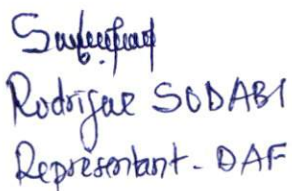 Rodrigue SODABI
Représentant - DAF